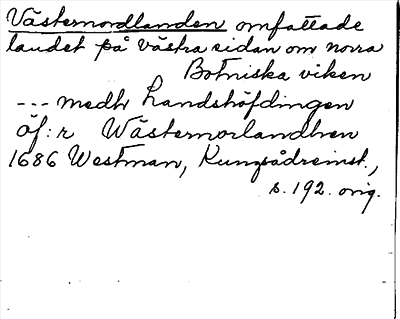 Västernordlanden omfattade
landet på västra sidan om norra
Botniska viken
--- medh Landshöfdingen
öf:r Wästernorlandhen
1686 Westman, Kungsådreinst.,
s. 192. orig.